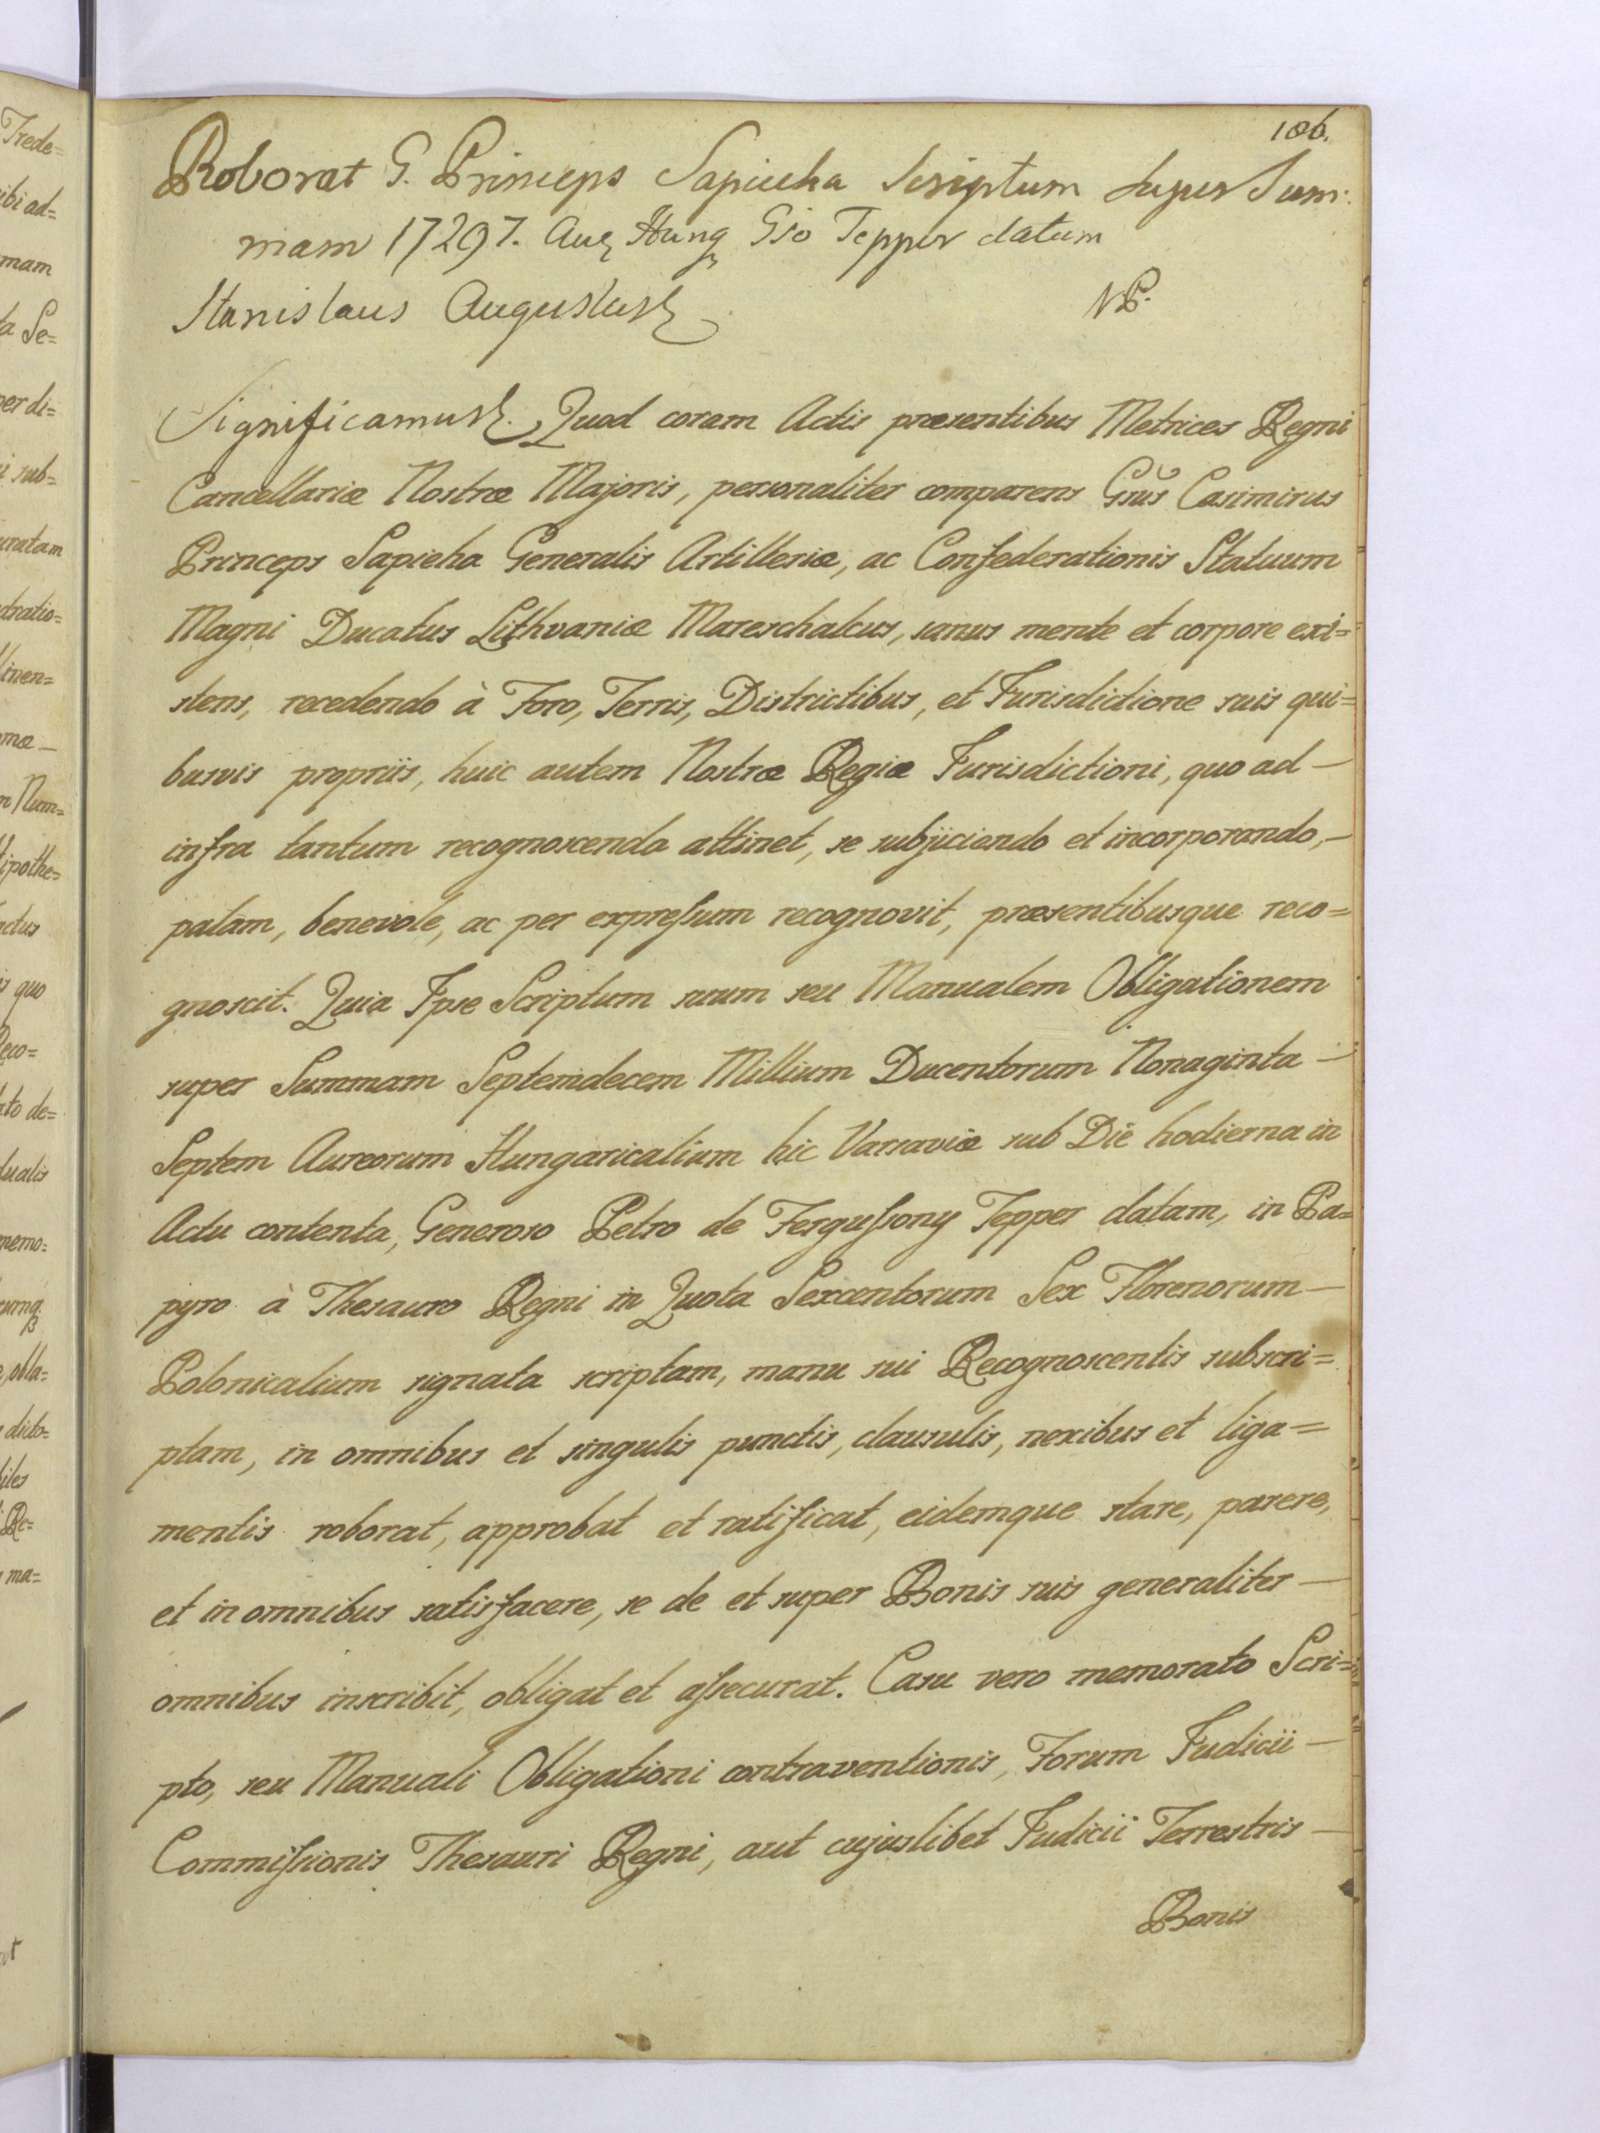 186.
Roborat G. Princeps Sapieha Scriptum super Sum-
mam 17297. Aur Hung Gso Tepper datum
Stanislaus Augustus NP.
Significamus. Quod coram Actis præsentibus Metrices Regni
Cancellariæ Nostræ Majoris, personaliter comparens Gsus Casimirus
Princeps Sapieha Generalis Artilleriæ, ac Confederationis Statuum
Magni Ducatus Lithvaniæ Mareschalcus, sanus mente et corpore exi=
stens, recedendo à Foro, Terris, Districtibus, et Jurisdictione suis qui=
busvis propriis, huic autem Nostræ Regiæ Jurisdictioni, quo ad —
infra tantum recognoscenda attinet, se subjiciendo et incorporando, —
palam, benevole, ac per expreſsum recognovit, præsentibusque reco=
gnoscit. Quia Ipse Scriptum suum seu Manualem Obligationem
super Summam Septemdecem Millium Ducentorum Nonaginta —
Septem Aureorum Hungaricalium hic Varsaviæ sub Die hodierna in
Actu contenta, Generoso Petro de Ferguſsony Tepper datam, in Pa=
pyro à Thesauro Regni in Quota Sexcentorum Sex Florenorum —
Polonicalium signata scriptam, manu sui Recognoscentis subscri=
ptam, in omnibus et singulis punctis, clausulis, nexibus et liga=
mentis roborat, approbat et ratificat, eidemque stare, parere,
et in omnibus satisfacere, se de et super Bonis suis generaliter —
omnibus inscribit, obligat et aſsecurat. Casu vero memorato Scri=
pto, seu Manuali Obligationi contraventionis, Forum Judicii —
Commiſsionis Thesauri Regni, aut cujuslibet Judicii Terrestris —
Bonis